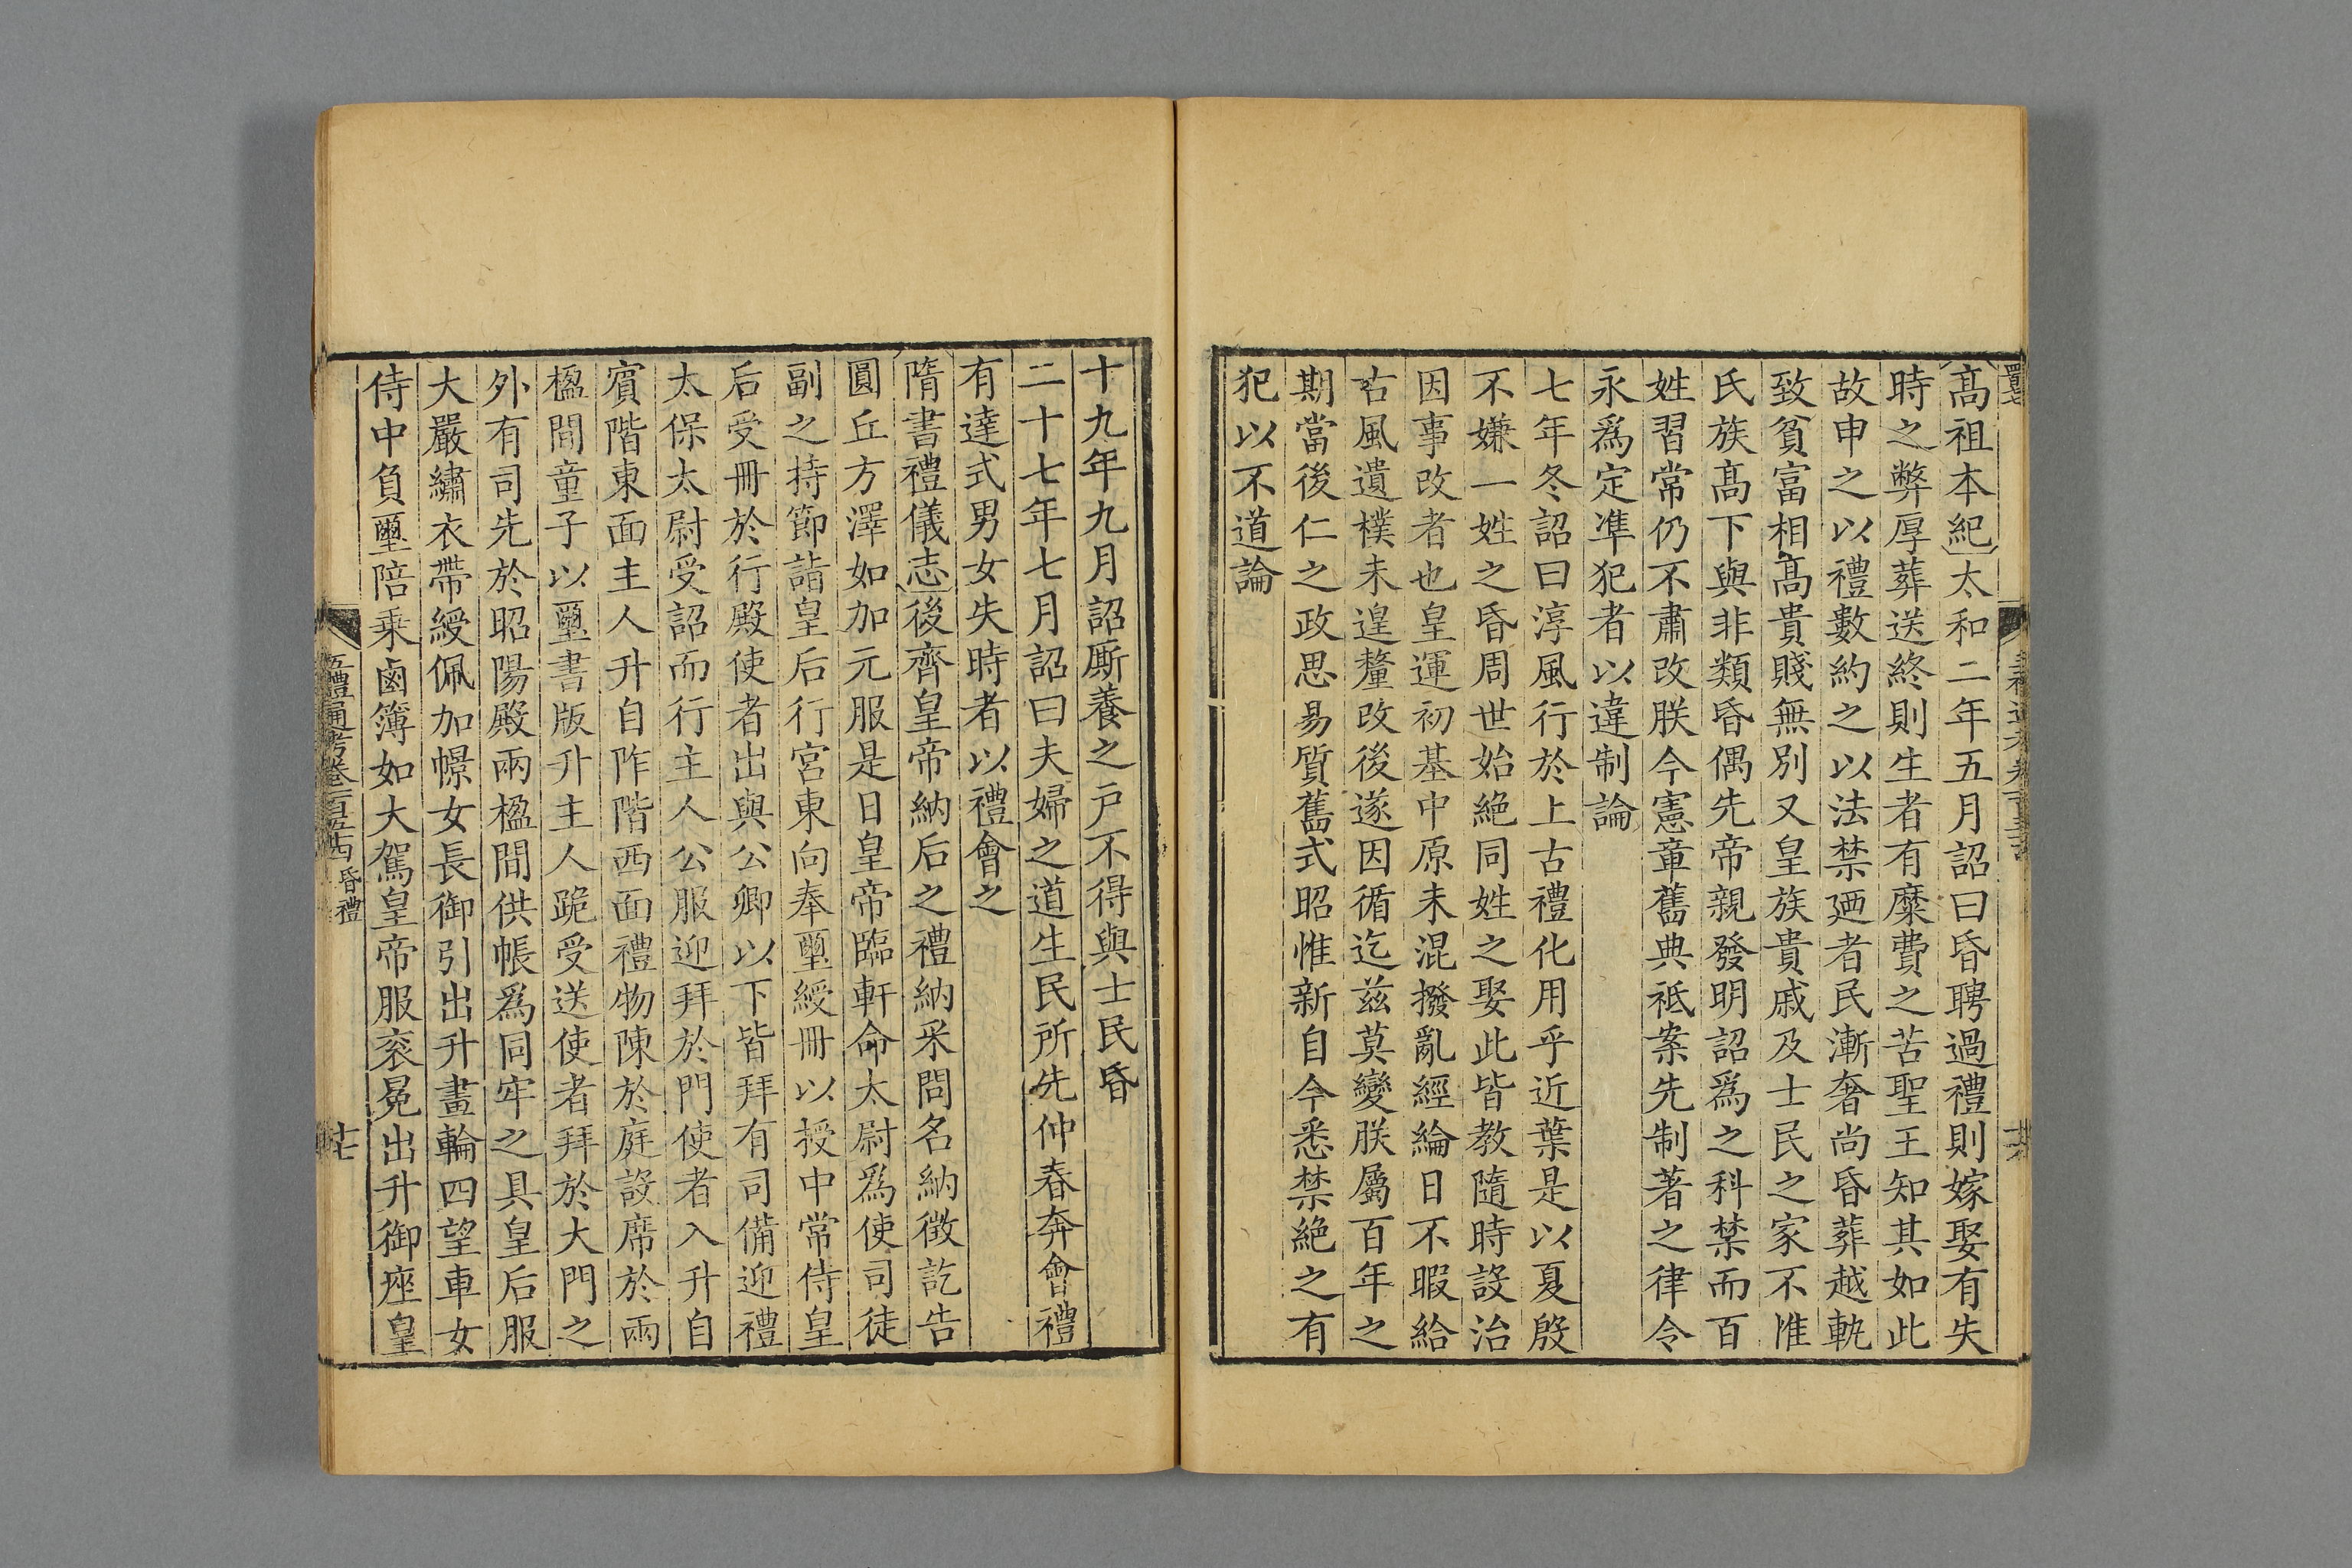 高祖本紀太和二年五月詔曰昏聘過禮則嫁娶有失
時之弊厚葬送終則生者有糜費之苦聖王知其如此
故申之以禮數約之以法禁廼者民漸奢尚昏葬越軌
致貧富相高貴賤無別又皇族貴戚及士民之家不惟
氏族高下與非類昏偶先帝親發明詔爲之科禁而百
姓習常仍不肅改朕今憲章舊典祗案先制著之律令
永爲定準犯者以違制論
七年冬詔曰淳風行於上古禮化用乎近葉是以夏殷
不嫌一姓之昏周世始絕同姓之娶此皆教隨時設治
因事改者也皇運初基中原未混撥亂經綸日不暇給
古風遺樸未遑釐改後遂因循迄兹莫變朕屬百年之
期當後仁之政思易質舊式昭惟新自今悉禁絕之有
犯以不道論
十九年九月詔厮養之戸不得與士民昏
二十七年七月詔曰夫婦之道生民所先仲春奔會禮
有達式男女失時者以禮會之
隋書禮儀志後齊皇帝納后之禮納采問名納徵訖告
圓丘方澤如加元服是日皇帝臨軒命太尉爲使司徒
副之持節詣皇后行宮東向奉璽綬冊以授中常侍皇
后受冊於行殿使者出與公卿以下皆拜有司備迎禮
太保太尉受詔而行主人公服迎拜於門使者入升自
賓階東面主人升自阼階西面禮物陳於庭設席於兩
楹間童子以璽書版升主人跪受送使者拜於大門之
外有司先於昭陽殿兩楹間供帳爲同牢之具皇后服
大嚴繡衣帶綬佩加幜女長御引出升畫輪四望車女
侍中負璽陪乘鹵簿如大駕皇帝服衮冕出升御座皇
五禮通考卷一百五十四 昏禮
十七